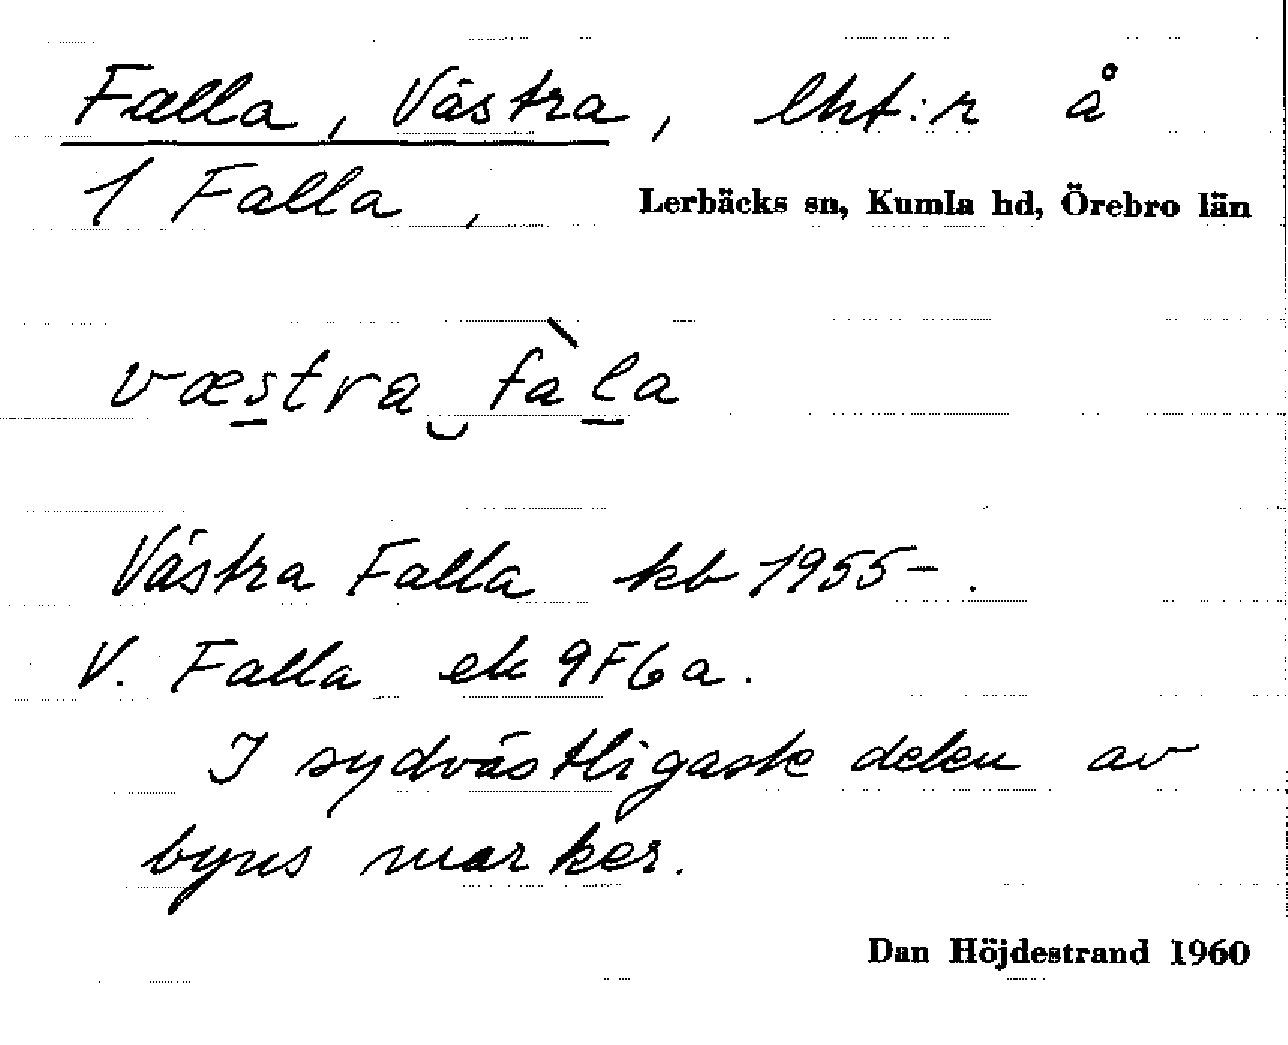 Falla, Västra, lht:r å
1 Falla, Lerbäcks sn, Kumla hd, Örebro län
væstra‿fàla
Västra Falla kb 1955-.
V. Falla ek 9F6a.
I sydvästligaste delen av
byns marker.
Dan Höjdestrand 1960